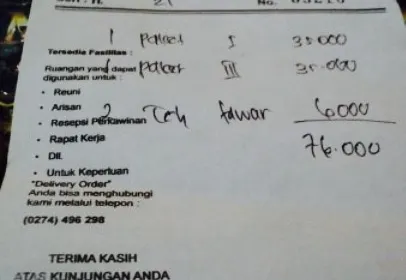 No.
1 Paket I 35000
Tersedia Fasilitas :
Ruangan yang dapat
digunakan untuk :
1 Paket III 35.000
• Reuni
• Arisan
2 Teh tawar 6000
• Resepsi Perkawinan
• Rapat Kerja
76.000
• Dll.
• Untuk Keperluan
"Delivery Order"
Anda bisa menghubungi
kami melalui telepon :
(0274) 496 298
TERIMA KASIH
ATAS KUNJUNGAN ANDA